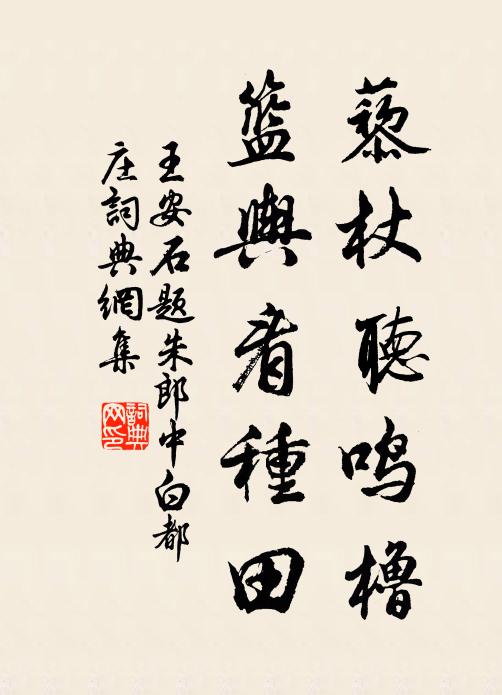 藜杖聽鳴櫓
籃輿看種田
王安石題朱郎中白都
庄詞典網集
詞典网印